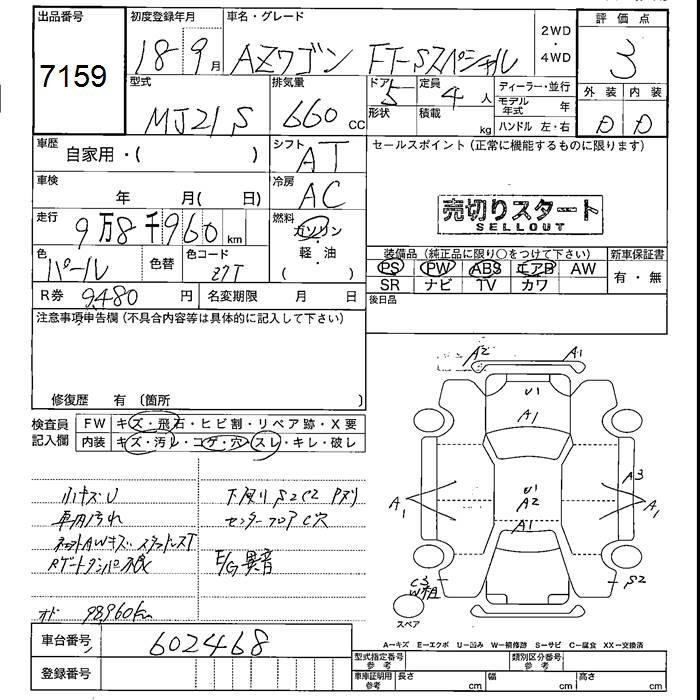 出品番号
7159
初度登録年月
18 9月
車名・グレード
AZワゴン FT-Sスペシャル
2WD
・
4WD
評価点
3
型式
MJ21S
排気量
660cc
ドア
5
形状
定員
4人
積載
kg
ディーラー・並行
モデル年式 年
ハンドル 左・右
外装 内装
D D
車歴
自家用・( )
シフト
AT
車検
年 月(日)
冷房
AC
走行
9万8千960km
燃料
ガソリン
・
軽・油
( )
色
パール
色替
色コード
27T
R券 9,480 円 名変期限 月 日
セールスポイント(正常に機能するものに限ります)
売切りスタート
SELLOUT
装備品(純正品に限り○をつけて下さい)
PS PW ABS エアB AW
SR ナビ TV カワ
新車保証書
有・無
後日品
注意事項申告欄(不具合内容等は具体的に記入して下さい)
修復歴 有 (箇所 )
検査員記入欄
FW キズ・飛石・ヒビ割・リペア跡・X要
内装 キズ・汚レ・コゲ・穴・スレ・キレ・破レ
小キズU
車内汚れ
センターフロアC穴
E/G異音
オドー 98960km
A2 A1
U1
A1
U1
A2
A1
A1
A3
A1
C3
S2
スペア
A-キズ E-エクボ U-凹み W-補修跡 S-サビ C-腐食 XX-交換済
車台番号
602468
登録番号
型式指定番号
参考
類別区分番号
参考
車庫証明用
参考
長さ cm 幅 cm 高さ cm